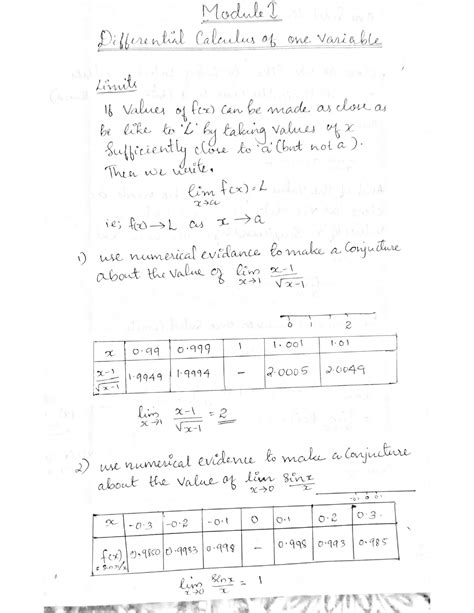 Module I
Differential Calculus of one variable
Limits
If values of f(x) can be made as close as
be like to 'L' by taking values of x
sufficiently close to 'a' (but not a).
Then we write,
lim f(x) = L
x→a
ie; f(x) → L as x → a
1) use numerical evidance to make a conjucture
about the value of lim x-1
x→1 √x-1
0 1 2
x 0.99 0.999 1 1.001 1.01
x-1 / √x-1 1.9949 1.9994 - 2.0005 2.0049
lim x-1 = 2
x→1 √x-1
2) use numerical evidence to make a conjucture
about the value of lim sinx
x→0 x
x -0.3 -0.2 -0.1 0 0.1 0.2 0.3
f(x) 0.9850 0.9933 0.998 - 0.998 0.993 0.985
lim sinx = 1
x→0 x